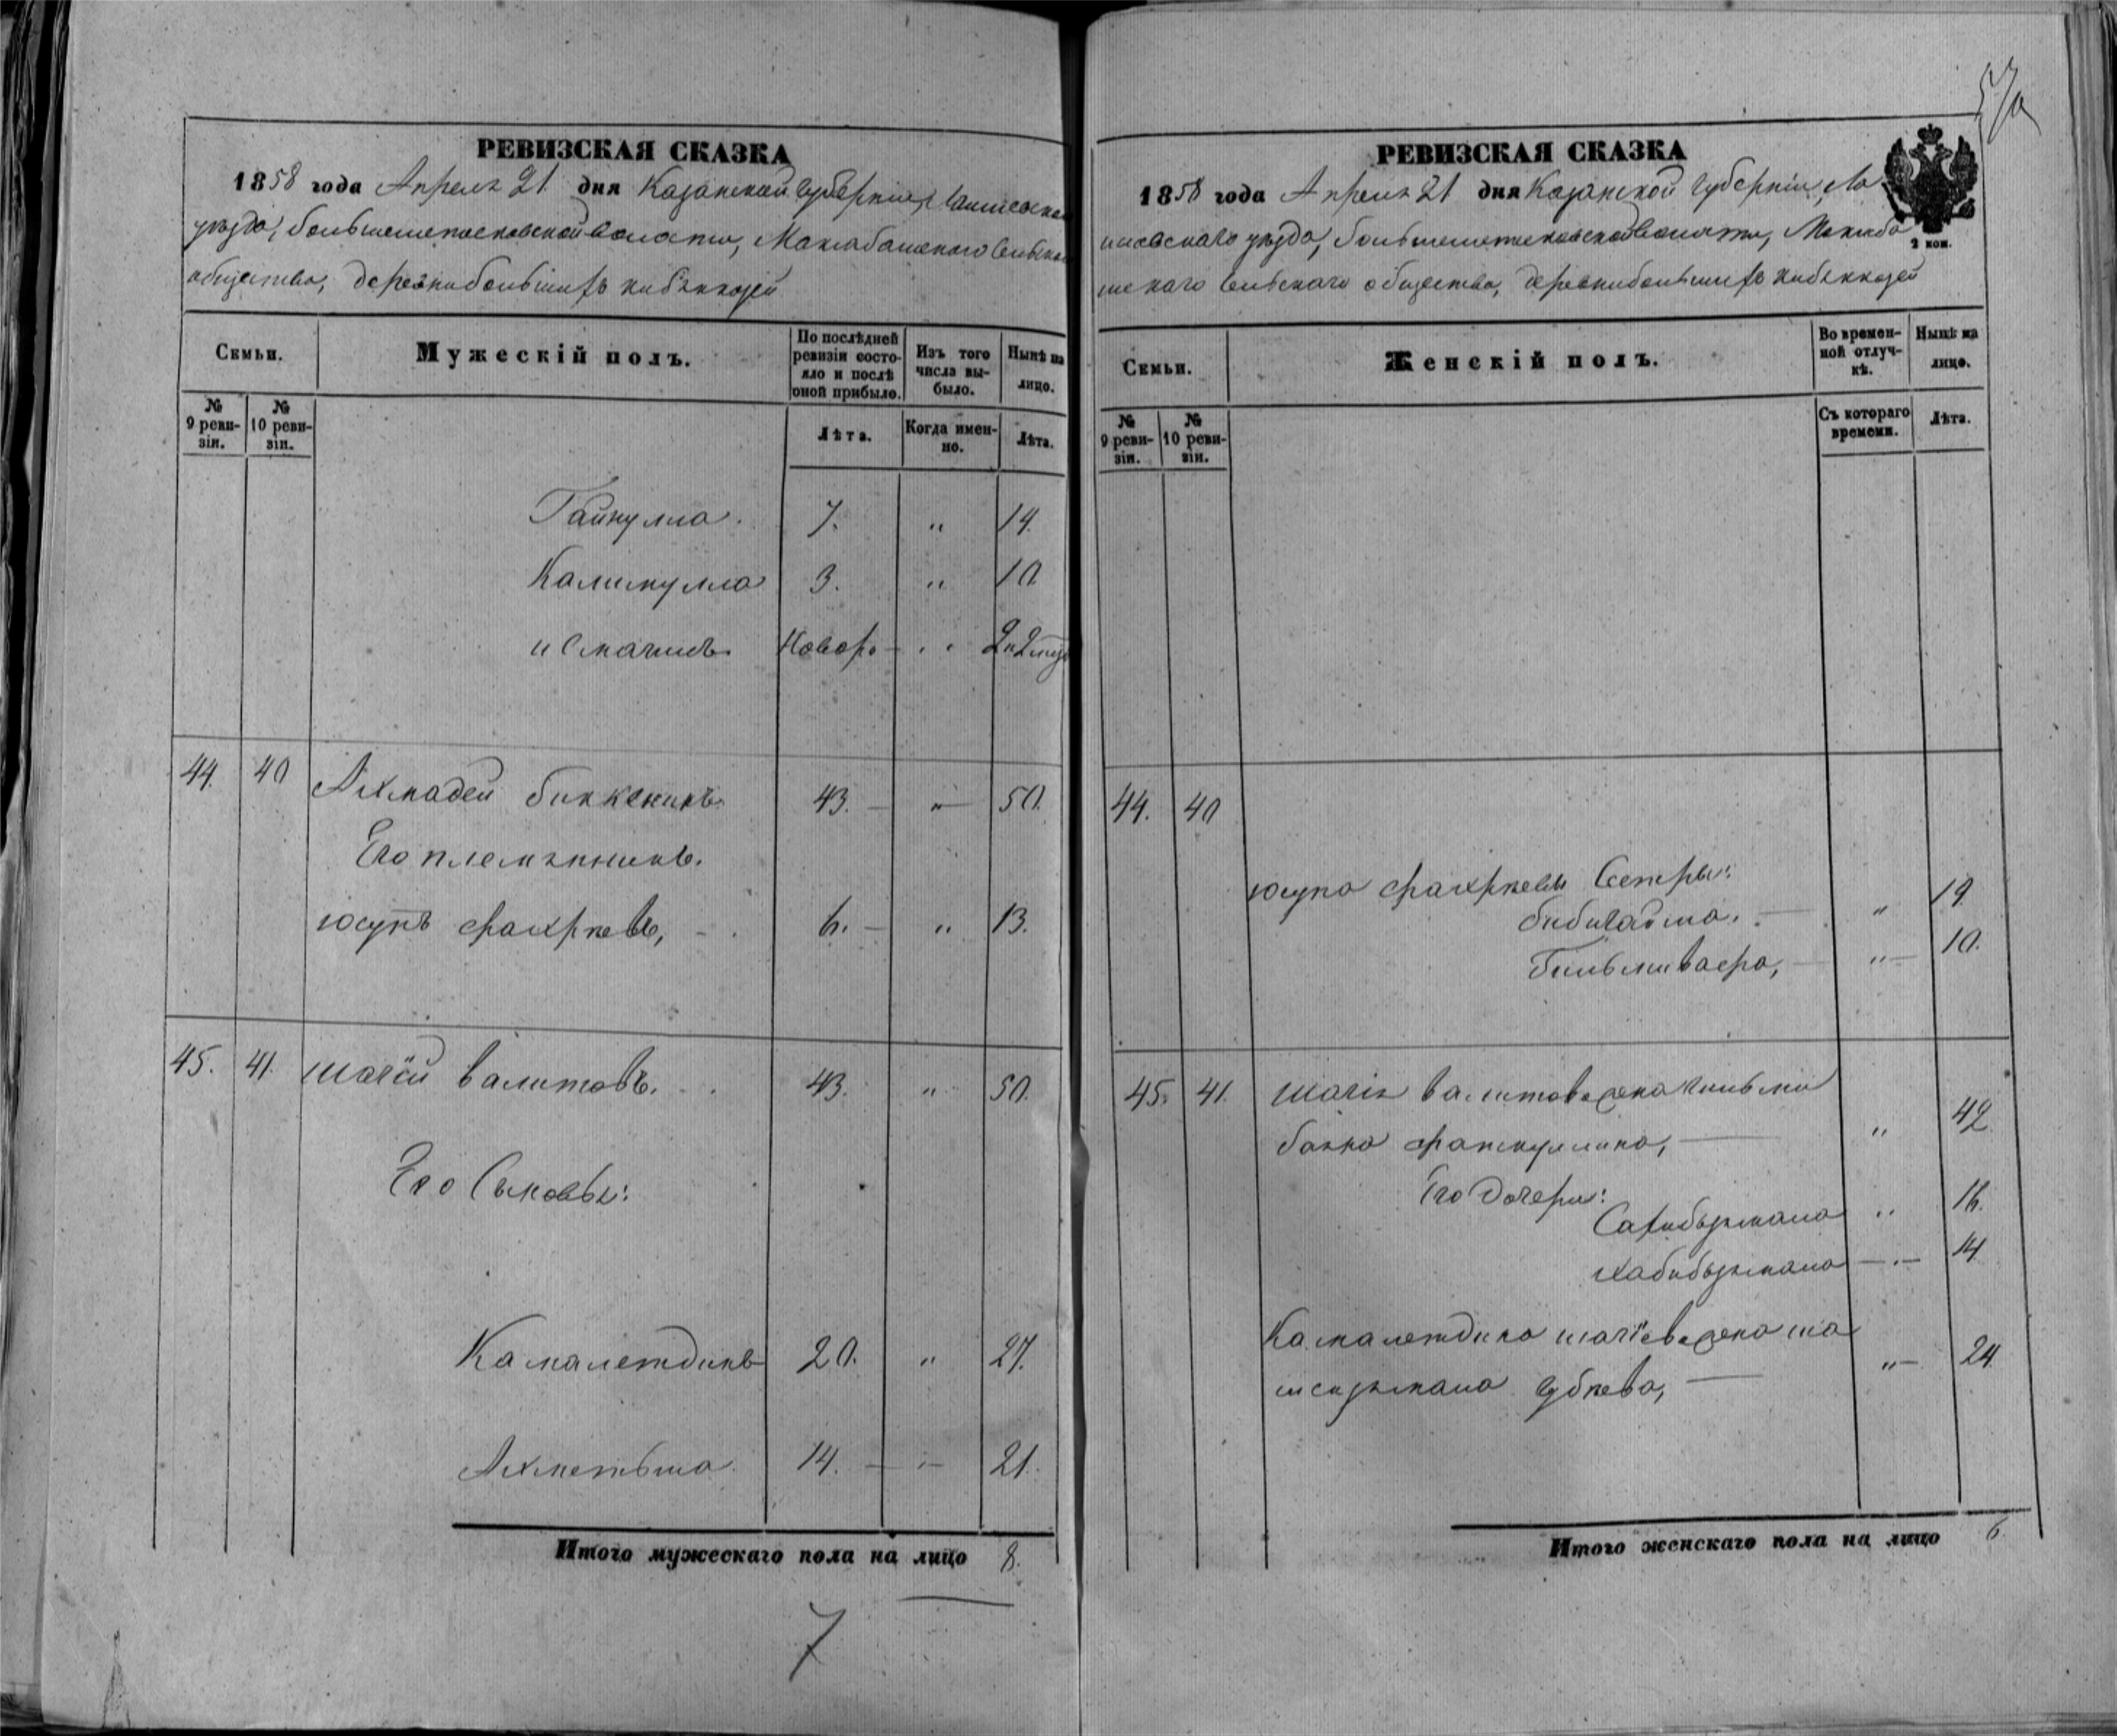 57/а
РЕВИЗСКАЯ СКАЗКА
1858 года Апреля 21 дня Казанской Губернии, Лаишевскаго
уезда, большеметесковской волости, Маклабашскаго Сельскаго
общества, деревни больших кибякозей
Семьи.
Мужескій полъ.
По послѣдней
ревизіи состо-
яло и послѣ
оной прибыло.
Изъ того
числа вы-
было.
Нынѣ на
лицо.
№
9 реви-
зіи.
№
10 реви-
зіи.
Лѣта.
Когда имен-
но.
Лѣта.
Гайнулла. 7. " 14.
Калимулла 3. " 10
и Смагилъ Новоро " 2 и 2 мца
44. 40 Ахмадей биккенинъ. 43. " 50.
Его племянникъ.
юсупъ фахрѣевъ, 6. " 13.
45. 41. шагiй валитовъ. 43. " 50.
Его Сыновья:
Камалетдинъ 20. " 27.
Ахметьша. 14. " 21.
Итого мужескаго пола на лицо 8.
7
РЕВИЗСКАЯ СКАЗКА
1858 года Апреля 21 дня Казанской Губерніи, Ла
ишевскаго уезда, большеметесковской волости, Маклаба
шскаго Сельскаго общества, деревни больших кибякозей
2 коп.
Семьи.
Женскій полъ.
Во времен-
ной отлуч-
кѣ.
Нынѣ на
лицо.
№
9 реви-
зіи.
№
10 реви-
зіи.
Съ котораго
времени.
Лѣта.
44. 40
юсупа фахрѣева Сестры:
бибигайша. " 19.
Гильмивафа, " 10.
45. 41. шагiя валитова жена Гильми
баяна фаткуллина, " 42.
Его дочери:
Сахибзямала " 16.
хабибзямала " 14
Камалетдина шагiева жена ша
мсизямала Губѣева, " 24.
Итого женскаго пола на лицо 6.